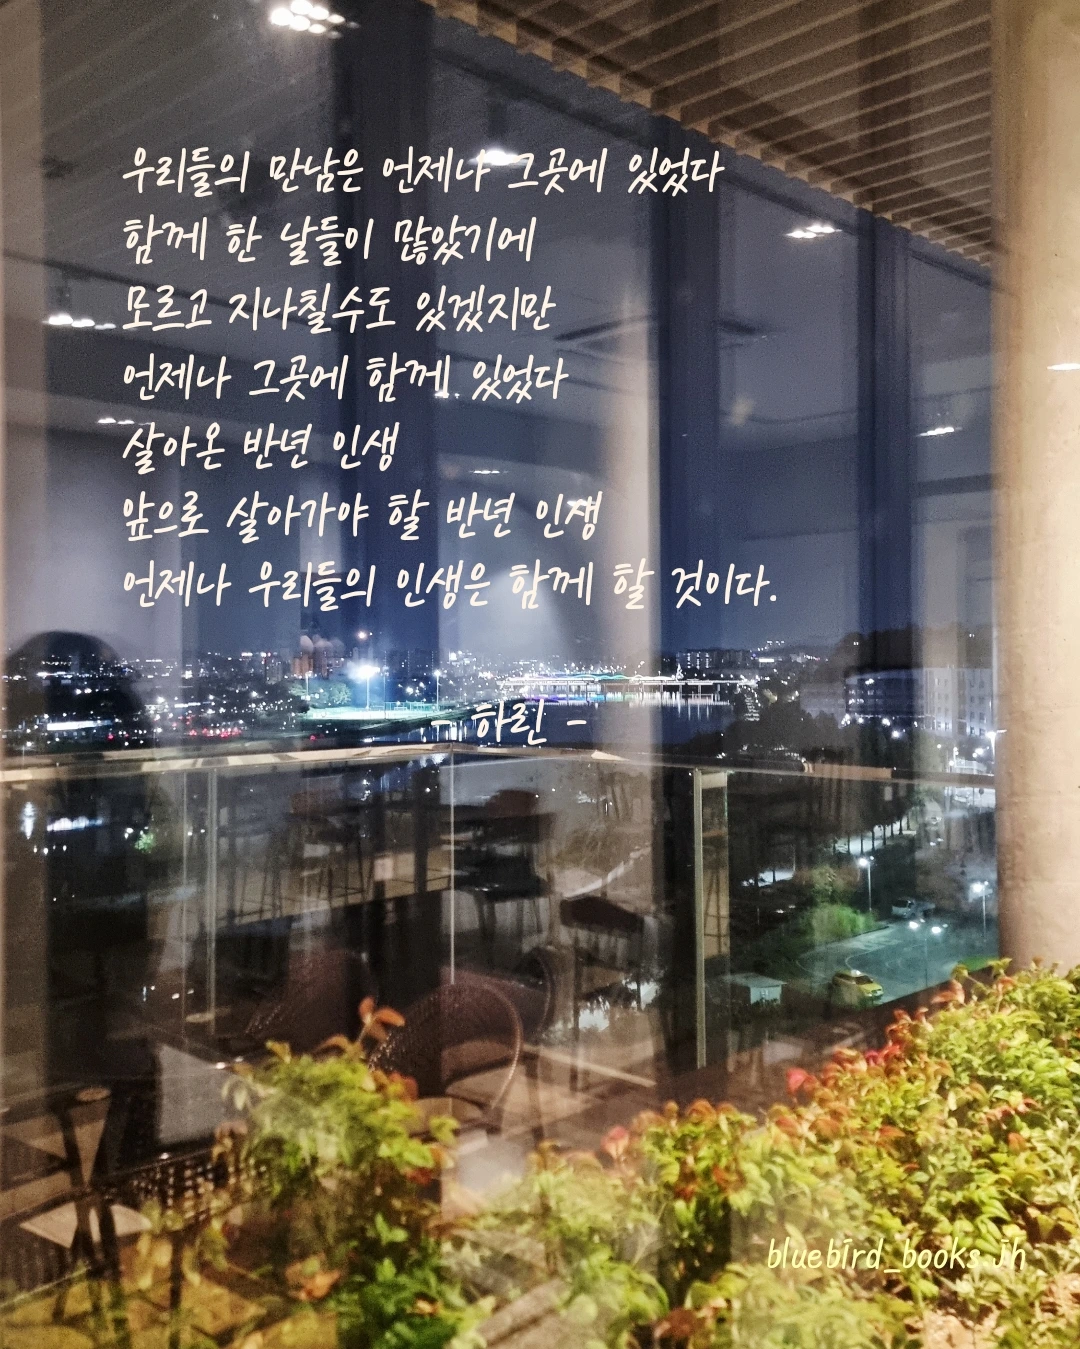 우리들의 만남은 언제나 그곳에 있었다
함께 한 날들이 많았기에
모르고 지나칠수도 있겠지만
언제나 그곳에 함께 있었다
살아온 반년 인생
앞으로 살아가야 할 반년 인쟁
언제나 우리들의 인생은 함께 할 것이다.
- 하린 -
bluebird_books.jh